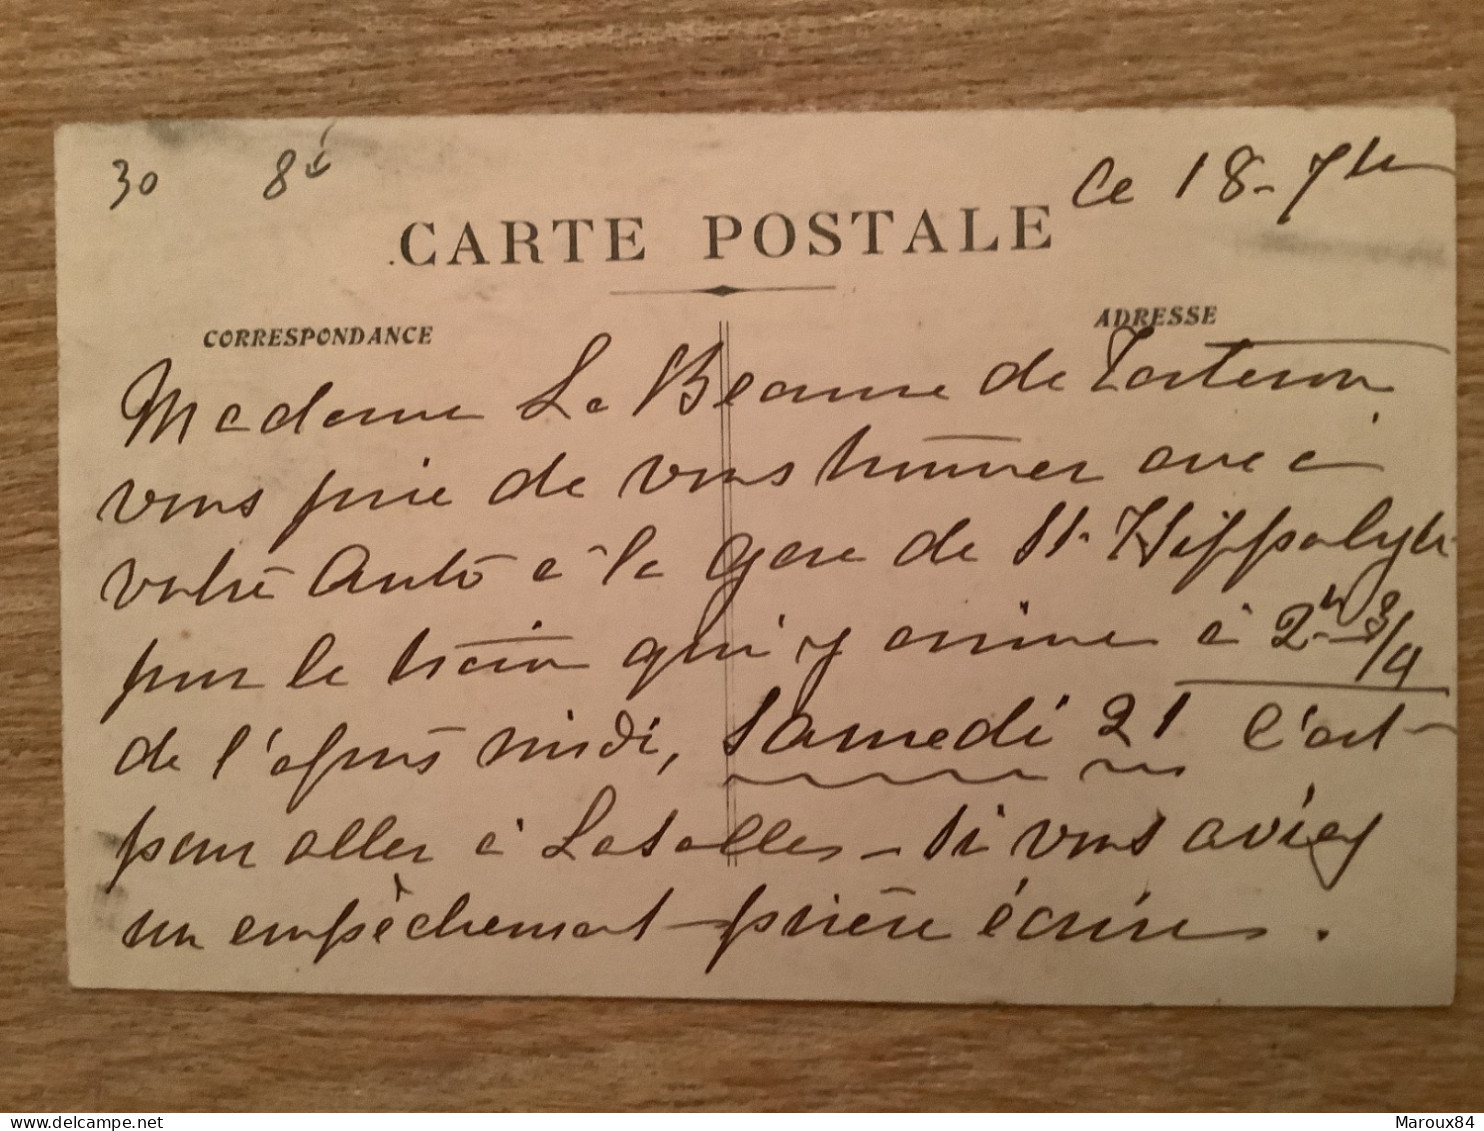 30 8
Ce 18 - 7bre
CARTE POSTALE
CORRESPONDANCE
ADRESSE
Madame La Beaume de Tarteron
vous prie de vous trouver avec
votre auto à la gare de St. Hippolyte
pour le train qui y arrive à 2h 3/4
de l'après midi, Samedi 21 C'est
pour aller à Lasalle - Si vous aviez
un empêchement prière écrire.
Maroux84